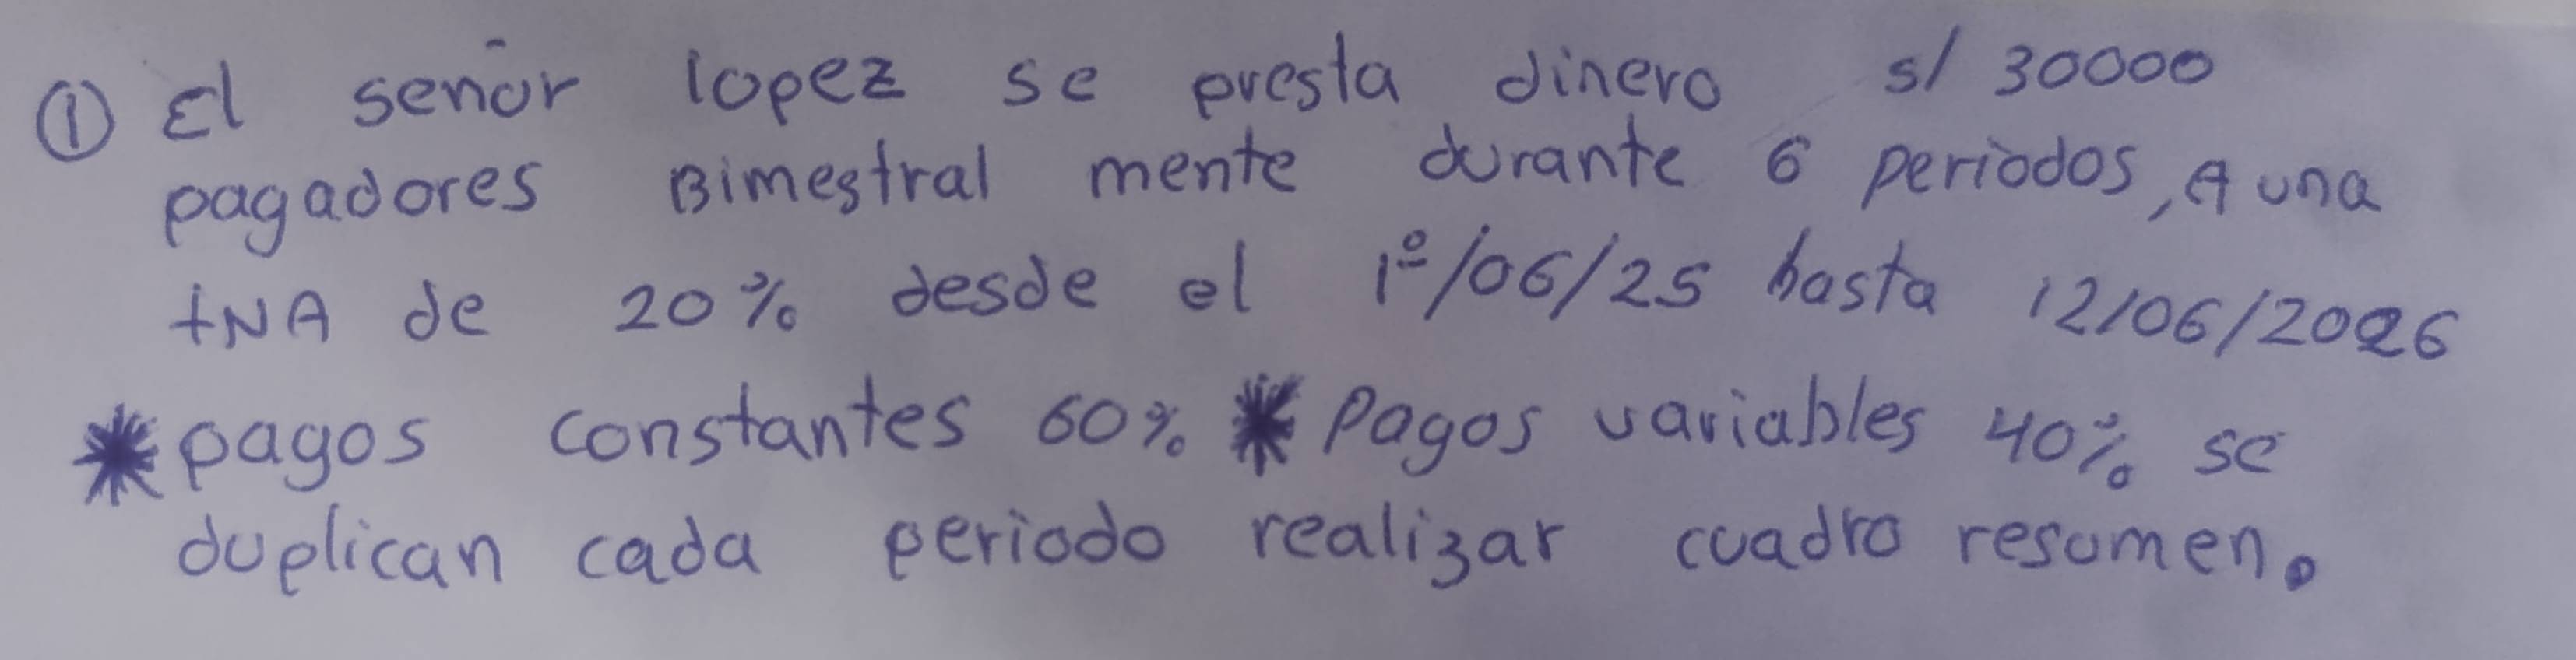 ① El señor lopez se presta dinero s/ 30000
pagadores Bimestral mente durante 6 periodos, A una
tNA de 20% desde el 1º/06/25 hasta 12/06/2026
* pagos constantes 60% * Pagos variables 40% se
duplican cada periodo realizar cuadro resumen.